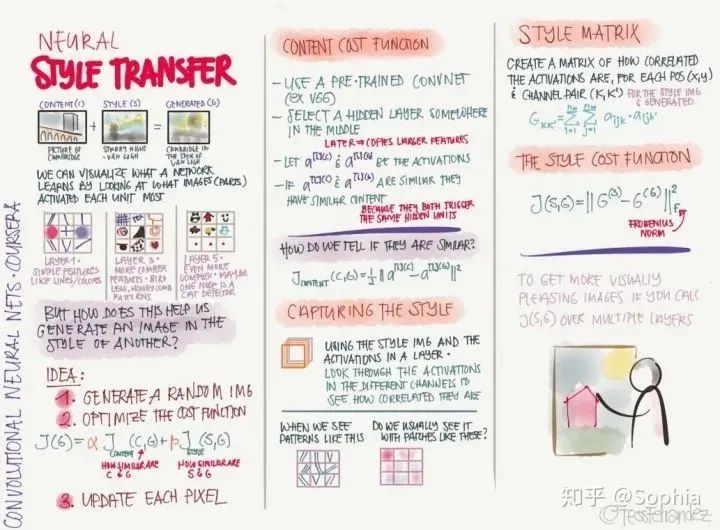 CONVOLUTIONAL NEURAL NETS · COURSERA
NEURAL
STYLE TRANSFER
CONTENT(C)
STYLE(S)
GENERATED(G)
+
=
PICTURE OF
CAMBRIDGE
STARRY NIGHT
- VAN GOGH
CAMBRIDGE IN
THE STYLE OF
VAN GOGH
WE CAN VISUALIZE WHAT A NETWORK
LEARNS BY LOOKING AT WHAT IMAGES (PARTS)
ACTIVATED EACH UNIT MOST
LAYER 1 ·
SIMPLE FEATURES
LIKE LINES/COLORS
LAYER 3 ·
MORE COMPLEX
FEATURES · BIRD
LEGS, HONEYCOMB
PATTERNS
LAYER 5 ·
EVEN MORE
COMPLEX · MAYBE
ONE NODE IS A
CAT DETECTOR
BUT HOW DOES THIS HELP US
GENERATE AN IMAGE IN THE
STYLE OF ANOTHER?
IDEA:
1. GENERATE A RANDOM IMG
2. OPTIMIZE THE COST FUNCTION
J(G) = α J CONTENT (C,G) + β J STYLE (S,G)
HOW SIMILAR ARE
C & G
HOW SIMILAR ARE
S & G
3. UPDATE EACH PIXEL
CONTENT COST FUNCTION
- USE A PRE-TRAINED CONVNET
(EX VGG)
- SELECT A HIDDEN LAYER SOMEWHERE
IN THE MIDDLE
LATER ⇒ COPIES LARGER FEATURES
- LET a^[l](C) & a^[l](G) BE THE ACTIVATIONS
- IF a^[l](C) & a^[l](G) ARE SIMILAR THEY
HAVE SIMILAR CONTENT
BECAUSE THEY BOTH TRIGGER
THE SAME HIDDEN UNITS
HOW DO WE TELL IF THEY ARE SIMILAR?
J CONTENT (C,G) = ½ || a^[l](C) - a^[l](G) ||²
CAPTURING THE STYLE
USING THE STYLE IMG AND THE
ACTIVATIONS IN A LAYER ·
LOOK THROUGH THE ACTIVATIONS
IN THE DIFFERENT CHANNELS TO
SEE HOW CORRELATED THEY ARE
WHEN WE SEE
PATTERNS LIKE THIS
DO WE USUALLY SEE IT
WITH PATCHES LIKE THESE?
STYLE MATRIX
CREATE A MATRIX OF HOW CORRELATED
THE ACTIVATIONS ARE, FOR EACH POS (X,Y)
& CHANNEL PAIR (K,K') FOR THE STYLE IMG
& GENERATED
G_KK' = Σ Σ a_ijk · a_ijk'
THE STYLE COST FUNCTION
J(S,G) = || G^(S) - G^(G) ||²_F
FROBENIUS
NORM
TO GET MORE VISUALLY
PLEASING IMAGES IF YOU CALC
J(S,G) OVER MULTIPLE LAYERS
知乎 @Sophia
@TessFerrandez